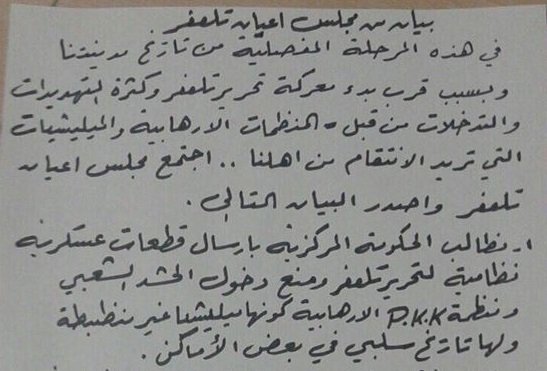 بيان من مجلس اعيان تلعفر
في هذه المرحلة المفصلية من تاريخ مدينتنا
وبسبب قرب بدء معركة تحرير تلعفر وكثرة التهديدات
والتدخلات من قبل المنظمات الارهابية والميليشيات
التي تريد الانتقام من اهلنا .. اجتمع مجلس اعيان
تلعفر واصدر البيان التالي .
١- نطالب الحكومة المركزية بارسال قطعات عسكرية
نظامية لتحرير تلعفر ومنع دخول الحشد الشعبي
ومنظمة P.K.K الارهابية كونها ميليشيا غير منظبطة
ولها تاريخ سلبي في بعض الأماكن .